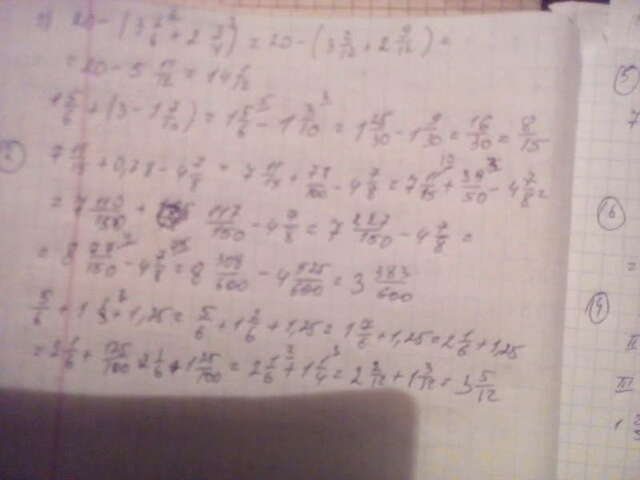 20 - (3 1/6 + 2 3/4) = 20 - (3 2/12 + 2 9/12) =
= 20 - 5 11/12 = 14 1/12
1 5/6 + (3 - 1 7/10) = 1 5/6 - 1 3/10 = 1 25/30 - 1 9/30 = 16/30 = 8/15
7 11/15 + 0,78 - 4 7/8 = 7 11/15 + 78/100 - 4 7/8 = 7 11/15 + 39/50 - 4 7/8 =
= 7 110/150 + 117/150 - 4 7/8 = 7 227/150 - 4 7/8 =
= 8 77/150 - 4 7/8 = 8 308/600 - 4 525/600 = 3 383/600
5/6 + 1 1/3 + 1,25 = 5/6 + 1 2/6 + 1,25 = 1 7/6 + 1,25 = 2 1/6 + 1,25
= 2 1/6 + 125/100 2 1/6 + 1 25/100 = 2 1/6 + 1 1/4 = 2 2/12 + 1 3/12 = 3 5/12
5
7
16
=
19
II
III
1